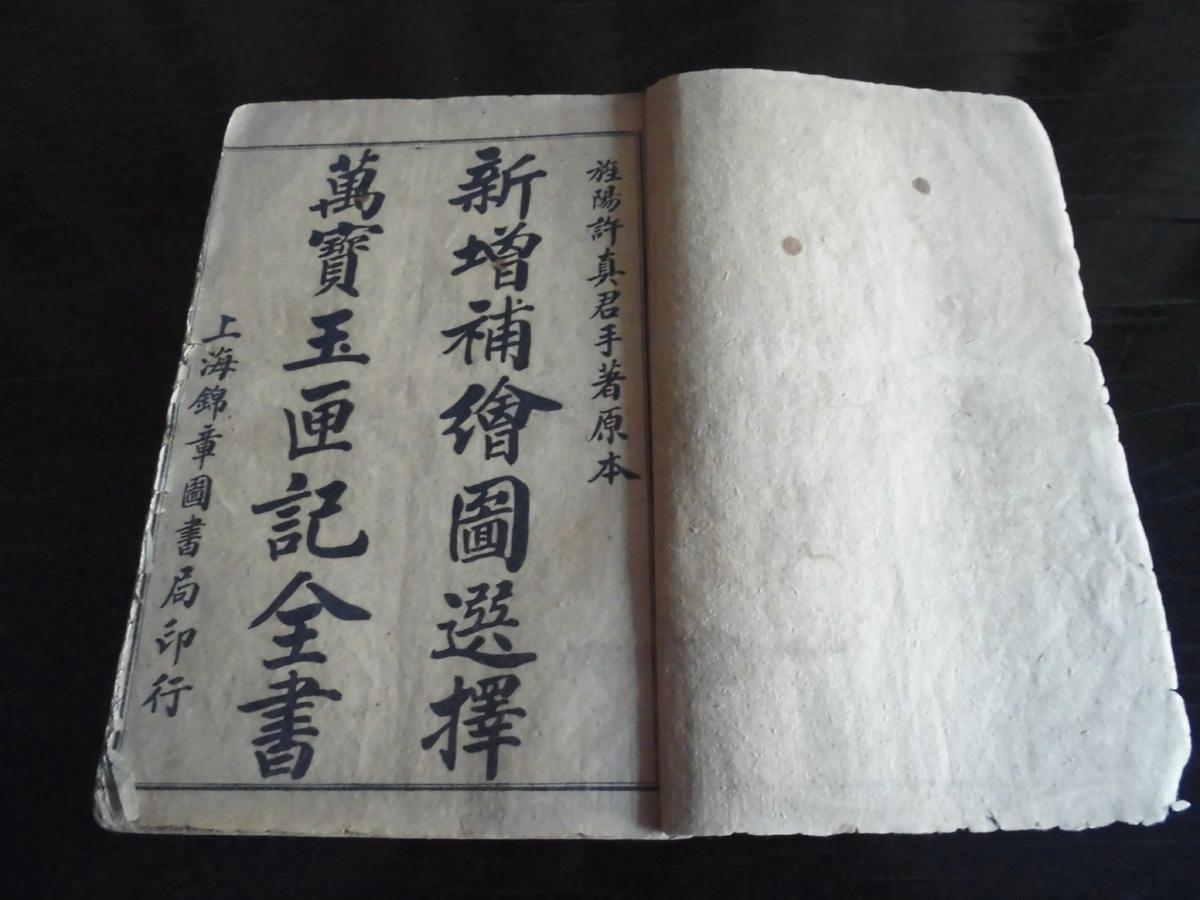 旌陽許真君手著原本
新增補繪圖選擇
萬寶玉匣記全書
上海錦章圖書局印行